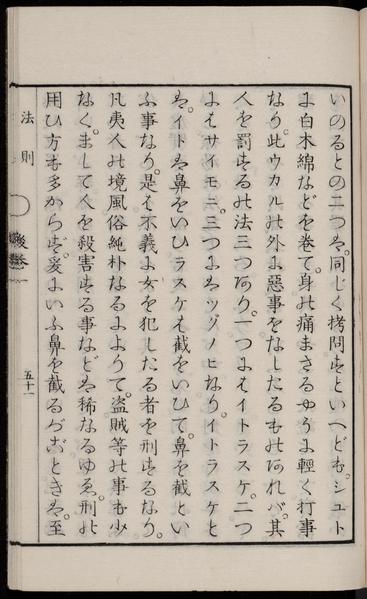 いのるとの二つは。同じく拷問するといへども。シュト
に白木綿などを巻て。身の痛まさるやうに輕く打事
なり。此ウカルの外に惡事をなしたるものあれバ。其
人を罰するの法三つあり。一つにはイトラスケ。二つ
にはサイモニ。三つにはツグノヒなり。イトラスケと
は。イトは鼻をいひラスケは截をいひて。鼻を截とい
ふ事なり。是は不義に女を犯したる者を刑するなり。
凡夷人の境風俗純朴なるによりて。盗賊等の事も少
なく。まして人を殺害する事などは稀なるゆゑ。刑の
用ひ方も多からず。爰にいふ鼻を截るがごときは。至
法則
五十一